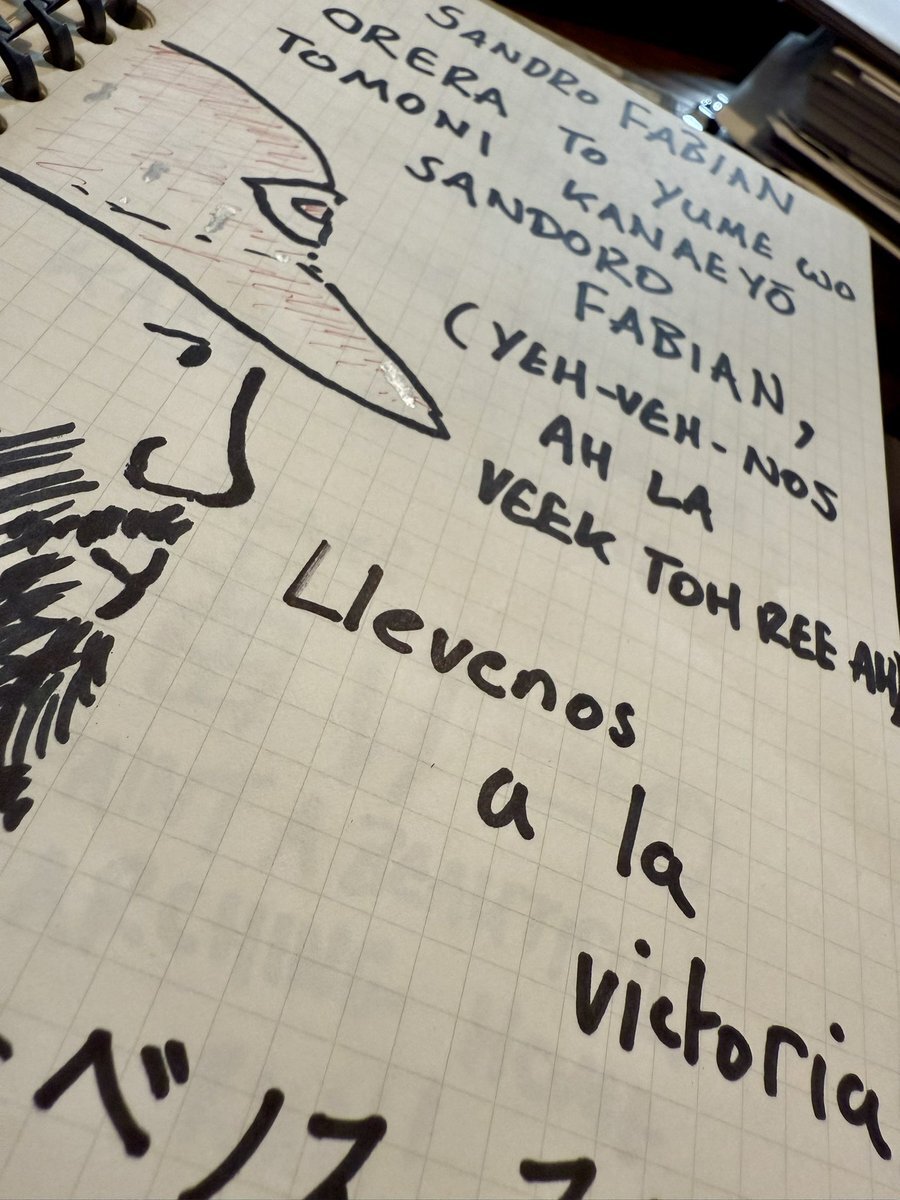 SANDRO FABIAN
ORERA TO YUME WO
TOMONI KANAEYŌ
SANDORO
FABIAN,
(YEH-VEH-NOS
AH LA
VEEK TOH REE AH)
Llevenos
a la
victoria
ベノス